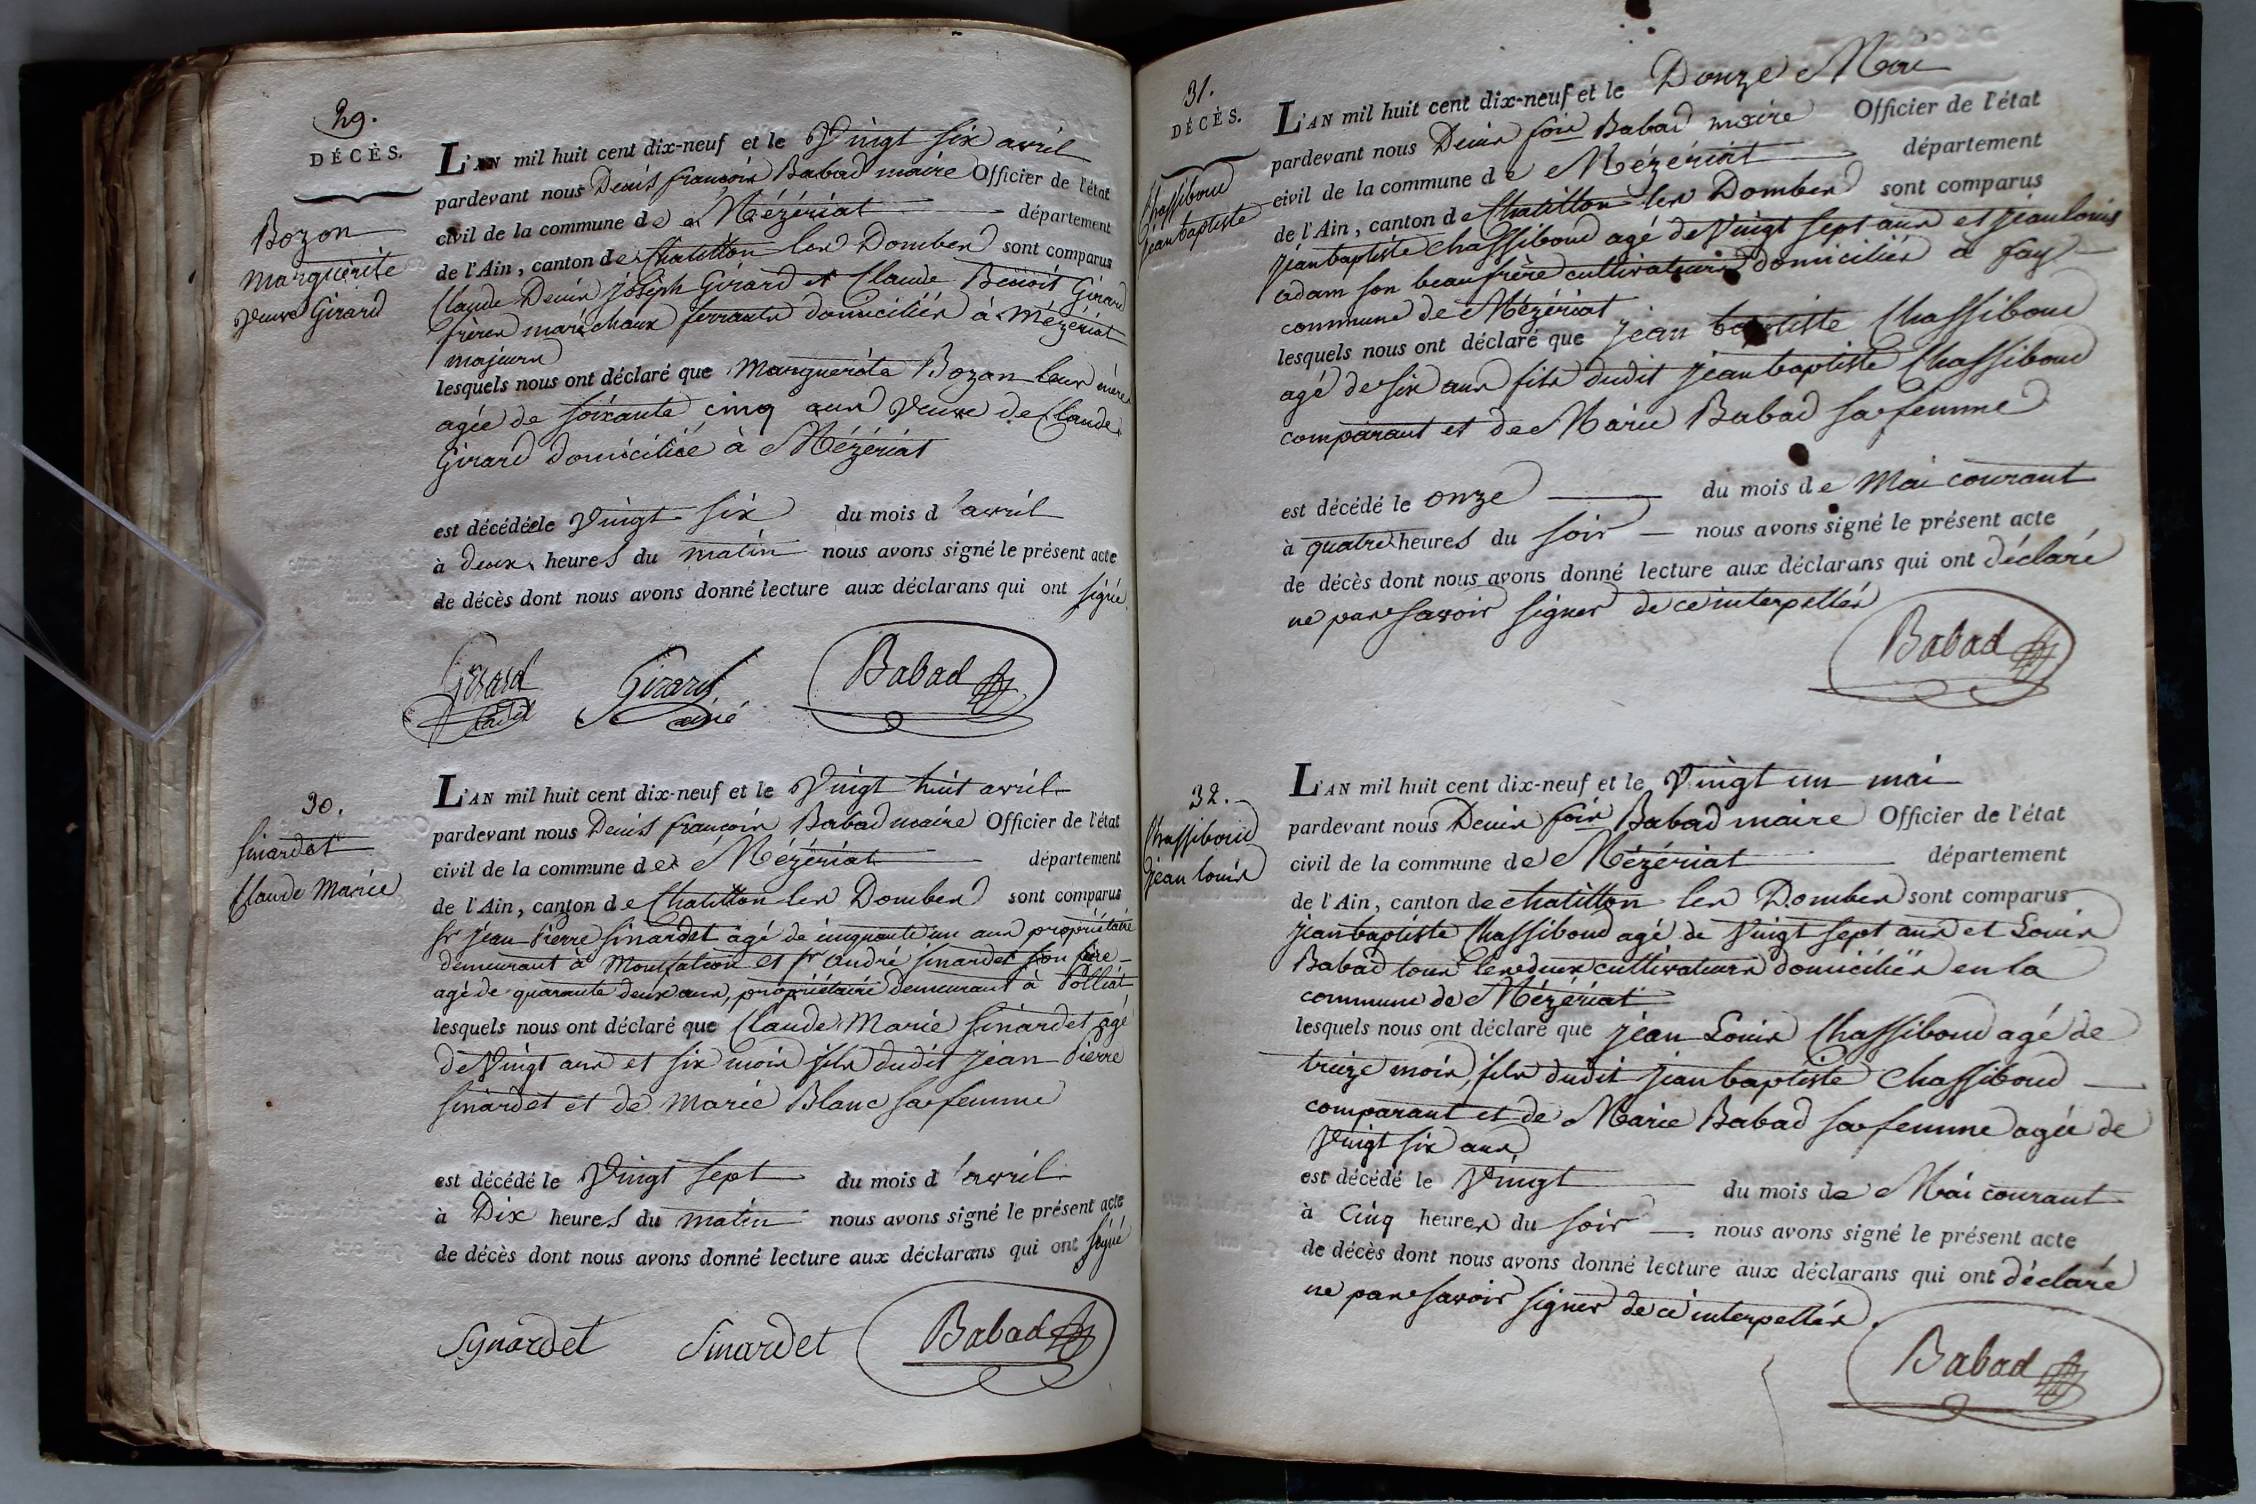 29.
DÉCÈS.
Bozon
Marguerite
veuve Girard
L'AN mil huit cent dix-neuf et le Vingt six avril
pardevant nous Denis françois Babad maire Officier de l'état
civil de la commune de Mézériat département
de l'Ain, canton de Chatillon les Dombes sont comparus
Claude Denis joseph Girard et Claude Benoit Girard
frères maréchaux ferrants domiciliés à Mézériat
majeurs
lesquels nous ont déclaré que Marguerite Bozon leur mère
agée de soixante cinq ans veuve de Claude
Girard domiciliée à Mézériat
est décédée le Vingt six du mois d'avril
à deux heures du matin nous avons signé le présent acte
de décès dont nous avons donné lecture aux déclarans qui ont signé
Girard cadet Girard ainé Babad
30.
Sinardet
Claude Marie
L'AN mil huit cent dix-neuf et le Vingt huit avril
pardevant nous Denis françois Babad maire Officier de l'état
civil de la commune de Mézériat département
de l'Ain, canton de Chatillon les Dombes sont comparus
sr jean Pierre Sinardet agé de cinquante un ans propriétaire
demeurant à Montfalcon et sr andré Sinardet son frère
agé de quarante deux ans, propriétaire demeurant à Polliat
lesquels nous ont déclaré que Claude Marie Sinardet agé
de Vingt ans et six mois fils dudit jean Pierre
Sinardet et de Marie Blanc sa femme
est décédé le Vingt sept du mois d'avril
à Dix heures du matin nous avons signé le présent acte
de décès dont nous avons donné lecture aux déclarans qui ont signé
Synardet Sinardet Babad
31.
DÉCÈS.
Chassiboud
jean baptiste
L'AN mil huit cent dix-neuf et le Douze Mai
pardevant nous Denis fois Babad maire Officier de l'état
civil de la commune de Mézériat département
de l'Ain, canton de Chatillon les Dombes sont comparus
jean baptiste Chassiboud agé de Vingt sept ans et jean louis
adam son beau frère cultivateurs domiciliés à fay
commune de Mézériat
lesquels nous ont déclaré que jean baptiste Chassiboud
agé de six ans fils dudit jean baptiste Chassiboud
comparant et de Marie Babad sa femme
est décédé le onze du mois de Mai courant
à quatre heures du soir nous avons signé le présent acte
de décès dont nous avons donné lecture aux déclarans qui ont déclaré
ne pas savoir signer de ce interpellés
Babad
32.
Chassiboud
jean louis
L'AN mil huit cent dix-neuf et le Vingt un mai
pardevant nous Denis fois Babad maire Officier de l'état
civil de la commune de Mézériat département
de l'Ain, canton de chatillon les Dombes sont comparus
jean baptiste Chassiboud agé de Vingt sept ans et Louis
Babad tous les deux cultivateurs domiciliés en la
commune de Mézériat
lesquels nous ont déclaré que jean Louis Chassiboud agé de
treize mois, fils dudit jean baptiste Chassiboud
comparant et de Marie Babad sa femme agée de
Vingt six ans
est décédé le Vingt du mois de Mai courant
à Cinq heures du soir nous avons signé le présent acte
de décès dont nous avons donné lecture aux déclarans qui ont déclaré
ne pas savoir signer de ce interpellés.
Babad